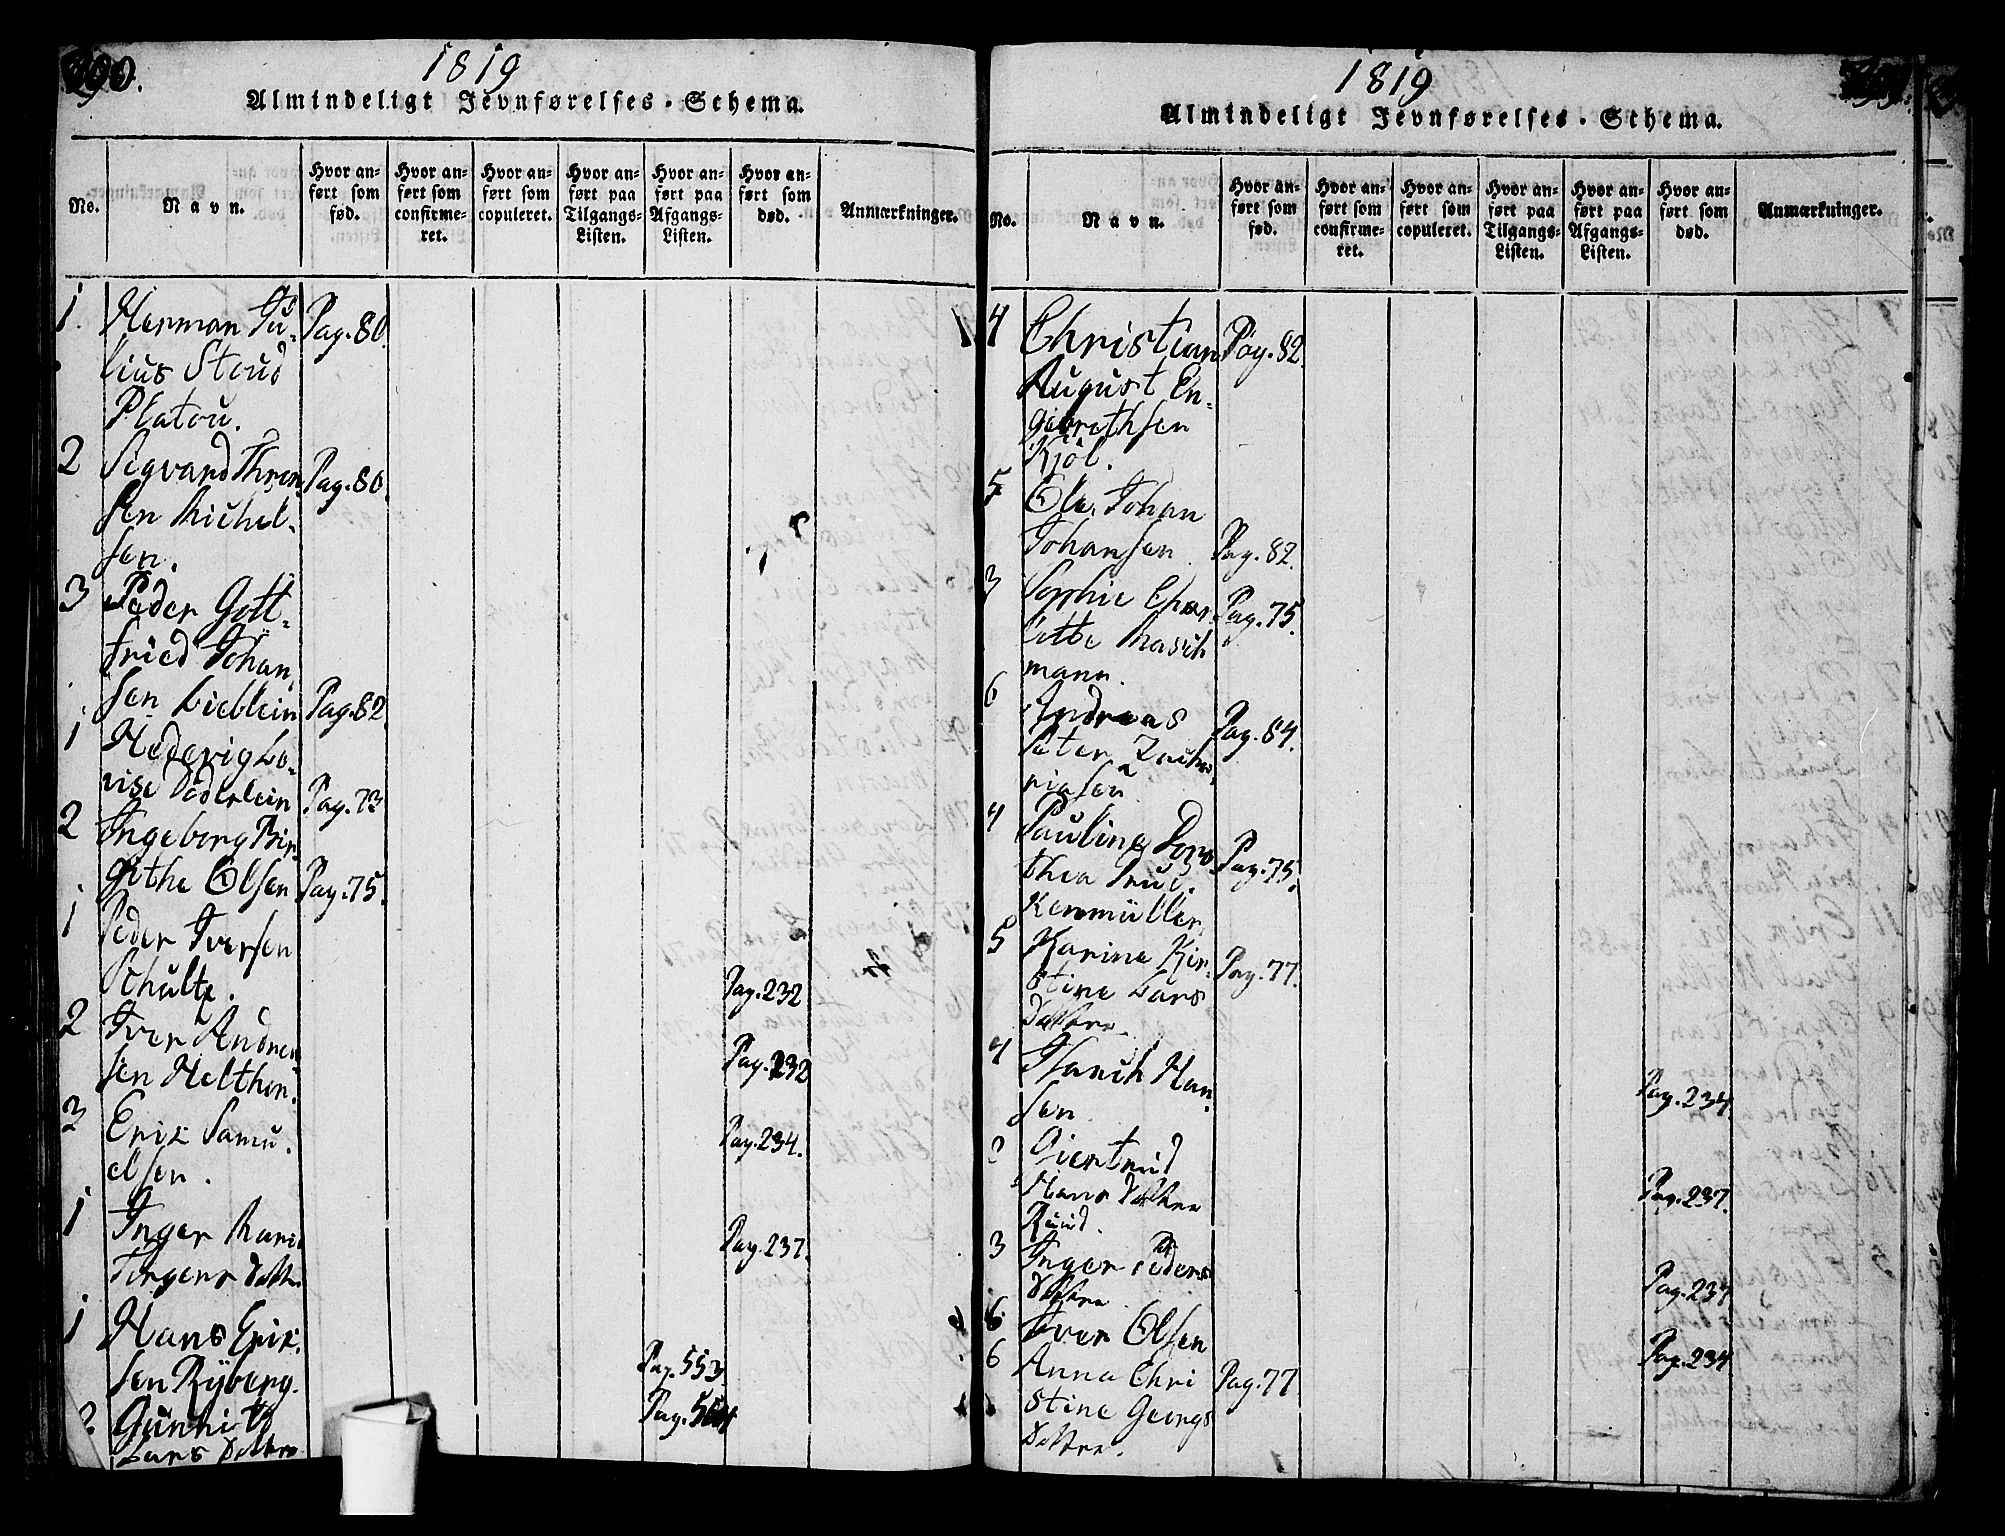 1819
Almindeligt Jevnførelses-Schema.
No.
Navn.
Hvor anført som fød.
Hvor anført som confirmeret.
Hvor anført som copuleret.
Hvor anført paa Tilgangs-Listen.
Hvor anført paa Afgangs-Listen.
Hvor anført som død.
Anmærkninger.
1. Herman Ju- Pag. 80.
lius Stoud
Platou.
2 Sigvard Thron- Pag. 80.
sen Michel-
sen.
3 Peder Gott-
fried Johan-
sen Lieblein Pag. 82.
1 Hedevig Lo-
vise Döderlein Pag. 73
2 Ingeborg Bir-
githe Olsen Pag. 75.
1 Peder Iversen
Schultz. Pag. 232
2 Iver Andrea-
sen Helthon. Pag. 232
3 Erik Samu-
elsen. Pag. 234.
1 Inger Marie
Jörgens Datter Pag. 237.
1 Hans Erik-
sen Ryberg. Pag. 553
2 Gunhild Pag. 564
Lars Datter
1819
Almindeligt Jevnførelses-Schema.
No.
Navn.
Hvor anført som fød.
Hvor anført som confirmeret.
Hvor anført som copuleret.
Hvor anført paa Tilgangs-Listen.
Hvor anført paa Afgangs-Listen.
Hvor anført som død.
Anmærkninger.
4 Christian Pag. 82.
August En-
gebrethsen
Kjöl.
5 Ole Johan
Johansen Pag. 82.
3 Sophie Char- Pag. 75.
lotte Masch
mann.
6 Andreas Pag. 84.
Peter Zacha-
riasen
4 Pauline Doro- Pag. 75.
thea Bruc-
kenmüller.
5 Karine Kir- Pag. 77.
stine Lars
Datter.
4 Hanch Han-
sen Pag. 234
2 Giertrud
Hans Datter Pag. 237.
Ruud.
3 Inger Peders
Datter Pag. 237
6 Iver Olsen Pag. 234
6 Anna Chri Pag. 77
stine Georgs
Datter.